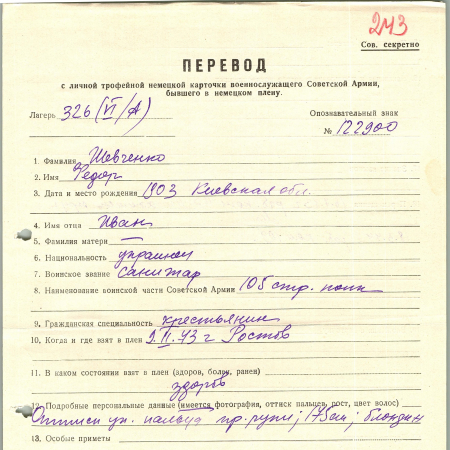 243
Сов. секретно
ПЕРЕВОД
с личной трофейной немецкой карточки военнослужащего Советской Армии,
бывшего в немецком плену.
Лагерь 326 (VI/A) Опознавательный знак
№ 122900
1. Фамилия Шевченко
2. Имя Федор
3. Дата и место рождения 1903 Киевская обл.
4. Имя отца Иван
5. Фамилия матери —
6. Национальность украинец
7. Воинское звание санитар
8. Наименование воинской части Советской Армии 105 стр. полк
9. Гражданская специальность крестьянин
10. Когда и где взят в плен 9.II.43 г Ростов
11. В каком состоянии взят в плен (здоров, болен, ранен)
здоров
12. Подробные персональные данные (имеется фотография, оттиск пальцев, рост, цвет волос)
Оттиск ук. пальца пр. руки; 175 см; блондин
13. Особые приметы